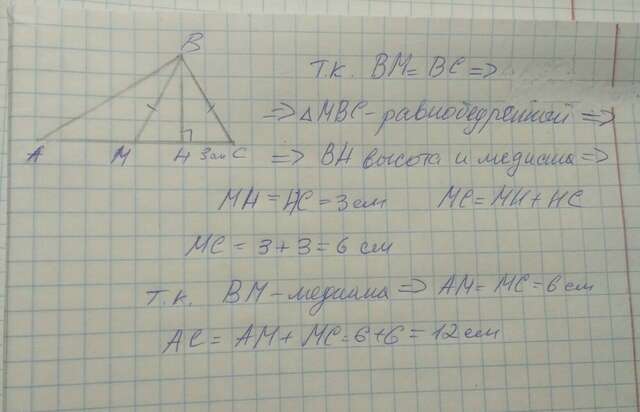 B
Т.К. BM = BC =>
=> △MBC - равнобедренной =>
A M H 3 см C
=> BH высота и медиана =>
MH = HC = 3 см MC = MH + HC
MC = 3 + 3 = 6 см
Т.К. BM - медиана => AM = MC = 6 см
AC = AM + MC = 6 + 6 = 12 см